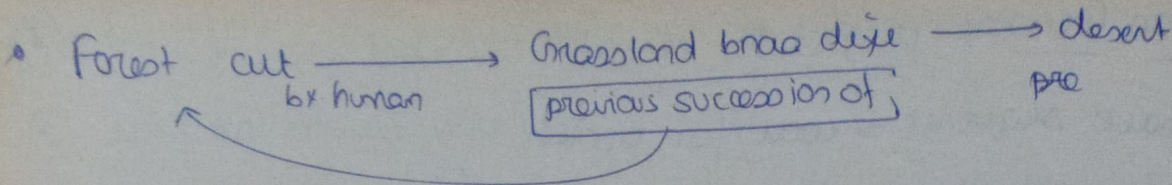 • Forest cut → Grassland bnao diye → desert
by human previous succession of pre